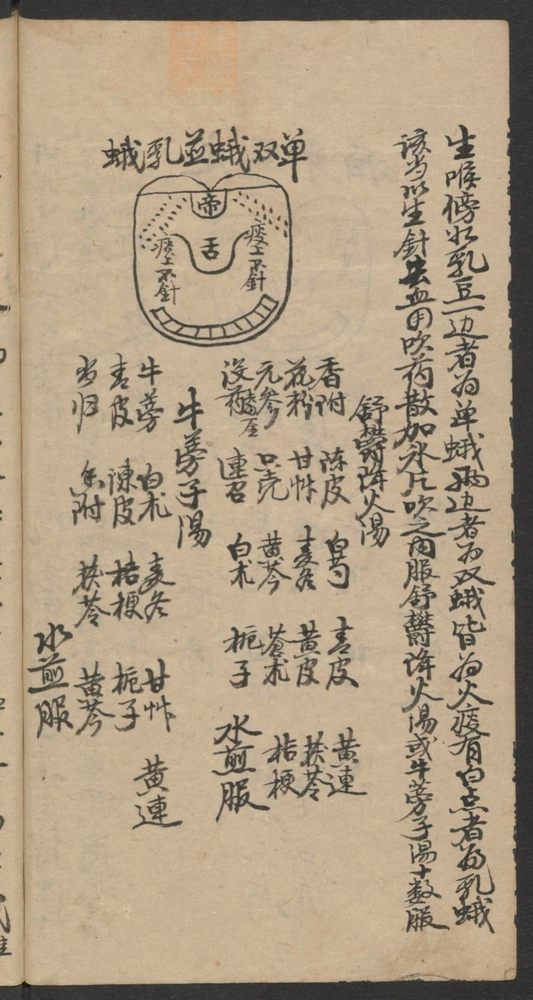 生喉傍如乳豆一边者为单蛾两边者为双蛾皆为火痰有白点者为乳蛾
该当以生針去血用吹药散加氷片吹之内服舒欝降火湯或牛蒡子湯十数服
单双蛾並乳蛾
帝
舌
痰上不針
痰上不針
舒欝降火湯
香附 陈皮 白芍 青皮 黄連
花粉 甘艸 麦冬 黄皮 茯苓
元参 只壳 黄芩 苍术 桔梗
没药 連召 白术 栀子 水煎服
牛蒡子湯
牛蒡 白术 麦冬 甘艸 黄連
青皮 陳皮 桔梗 栀子
当归 香附 茯苓 黄芩
水煎服